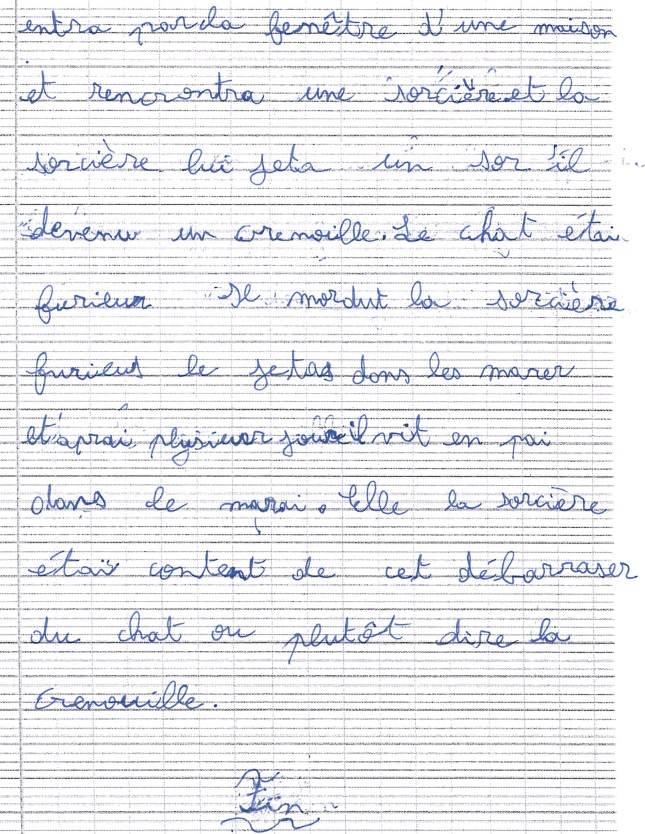 entra par la fenêtre d'une maison
et rencrontra une sorcière et la
sorcière lui jeta un sor il
devenu un crenoille. Le chat étai
furieux Il mordut la sorcière
furieus le jetas dans les marer
et aprai plusieur jour il vit en pai
dans le marai. Elle la sorcière
étais content de cet débarraser
du chat ou plutôt dire la
Grenouille.
Fin